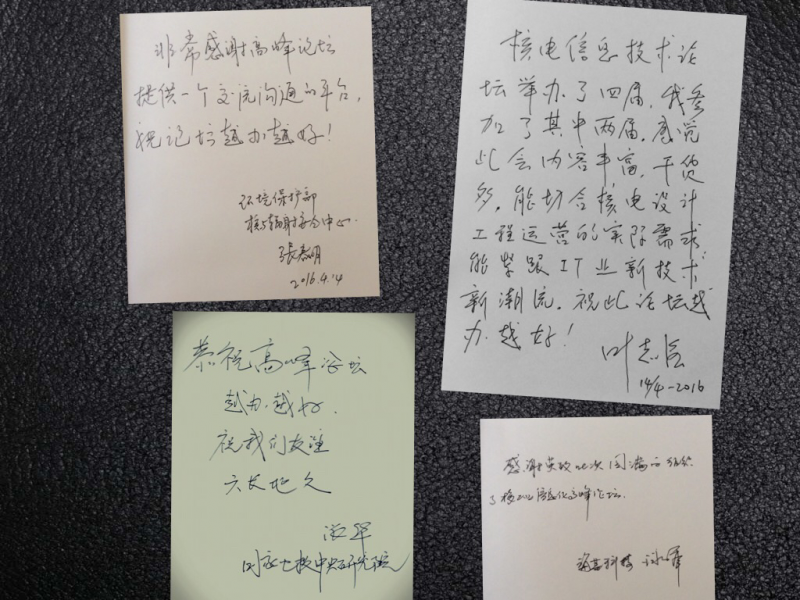 非常感谢高峰论坛
提供一个交流沟通的平台，
祝论坛越办越好！
环境保护部
核与辐射安全中心
2016.4.14
核电信息技术论
坛举办了四届，我参
加了其中两届，感觉
此会内容丰富，干货
多，能切合核电设计
工程运营的实际需求
能紧跟IT业新技术
新潮流。祝此论坛越
办越好！
叶志
14/4-2016
恭祝高峰论坛
越办越好.
祝我们友谊
天长地久
国家 核 中央研究院
感谢 此次圆满 组织
了核 信息化高峰论坛.
科技